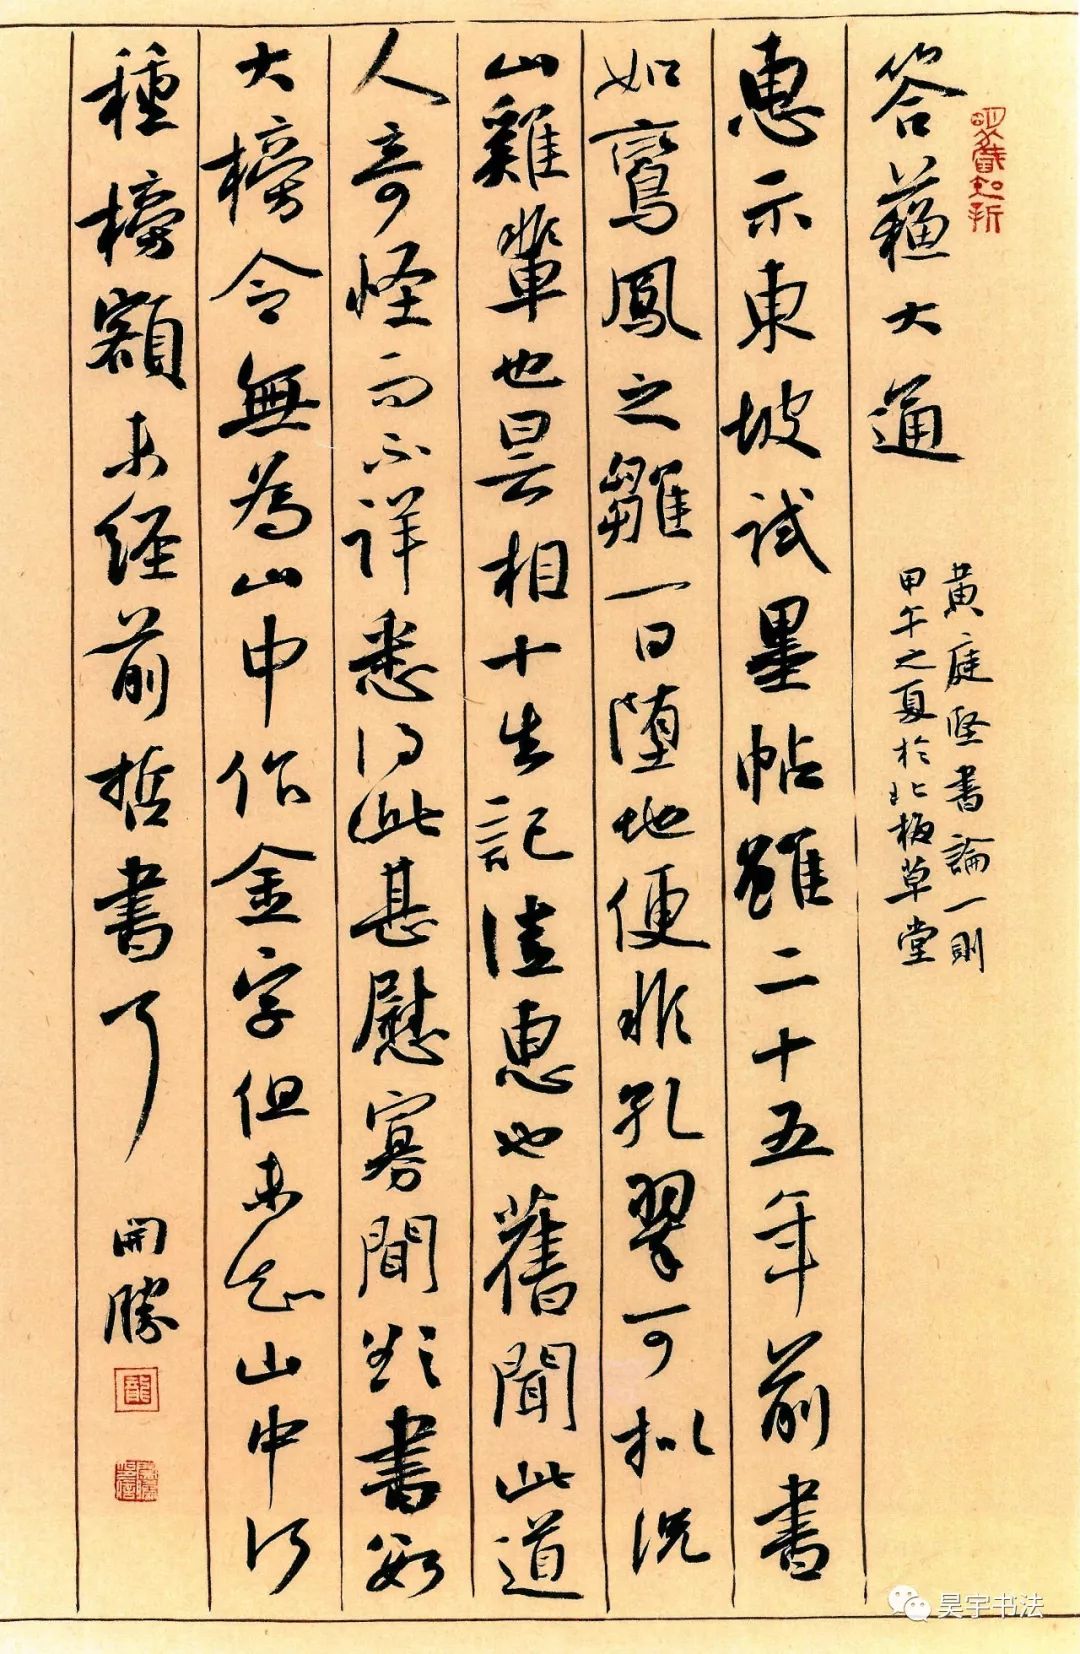 答蘓大通
惠示東坡試墨帖雖二十五年前書
如鸞鳳之雛一日墮地便非孔翠可擬況
山雞輩也曇相十生記遠惠也舊聞此道
人奇怪而不詳悉得此甚慰寡聞欵書數
大榜令無為山中作金字但未知山中何
種榜額未經前哲書了
開勝
黄庭堅書論一則
甲午之夏於北板草堂
昊宇书法